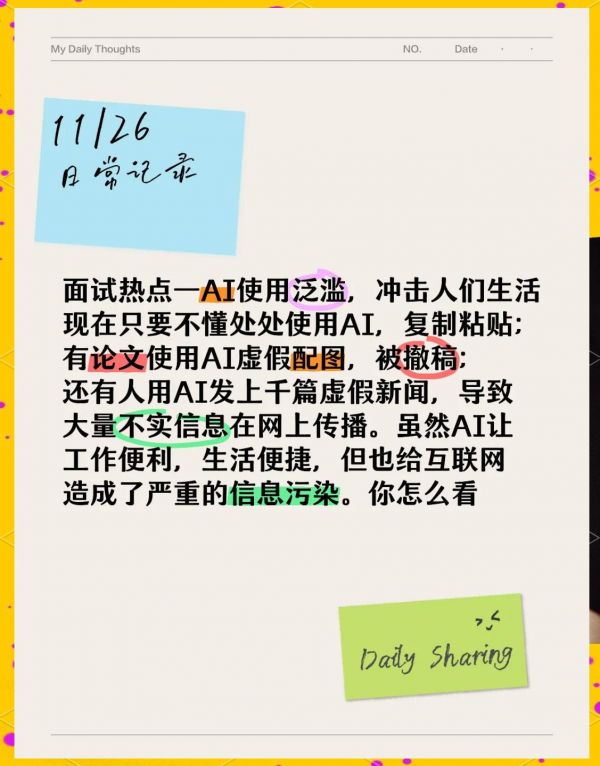 My Daily Thoughts NO. Date · ·
11/26
日常记录
面试热点一AI使用泛滥，冲击人们生活
现在只要不懂处处使用AI，复制粘贴；
有论文使用AI虚假配图，被撤稿；
还有人用AI发上千篇虚假新闻，导致
大量不实信息在网上传播。虽然AI让
工作便利，生活便捷，但也给互联网
造成了严重的信息污染。你怎么看
Daily Sharing